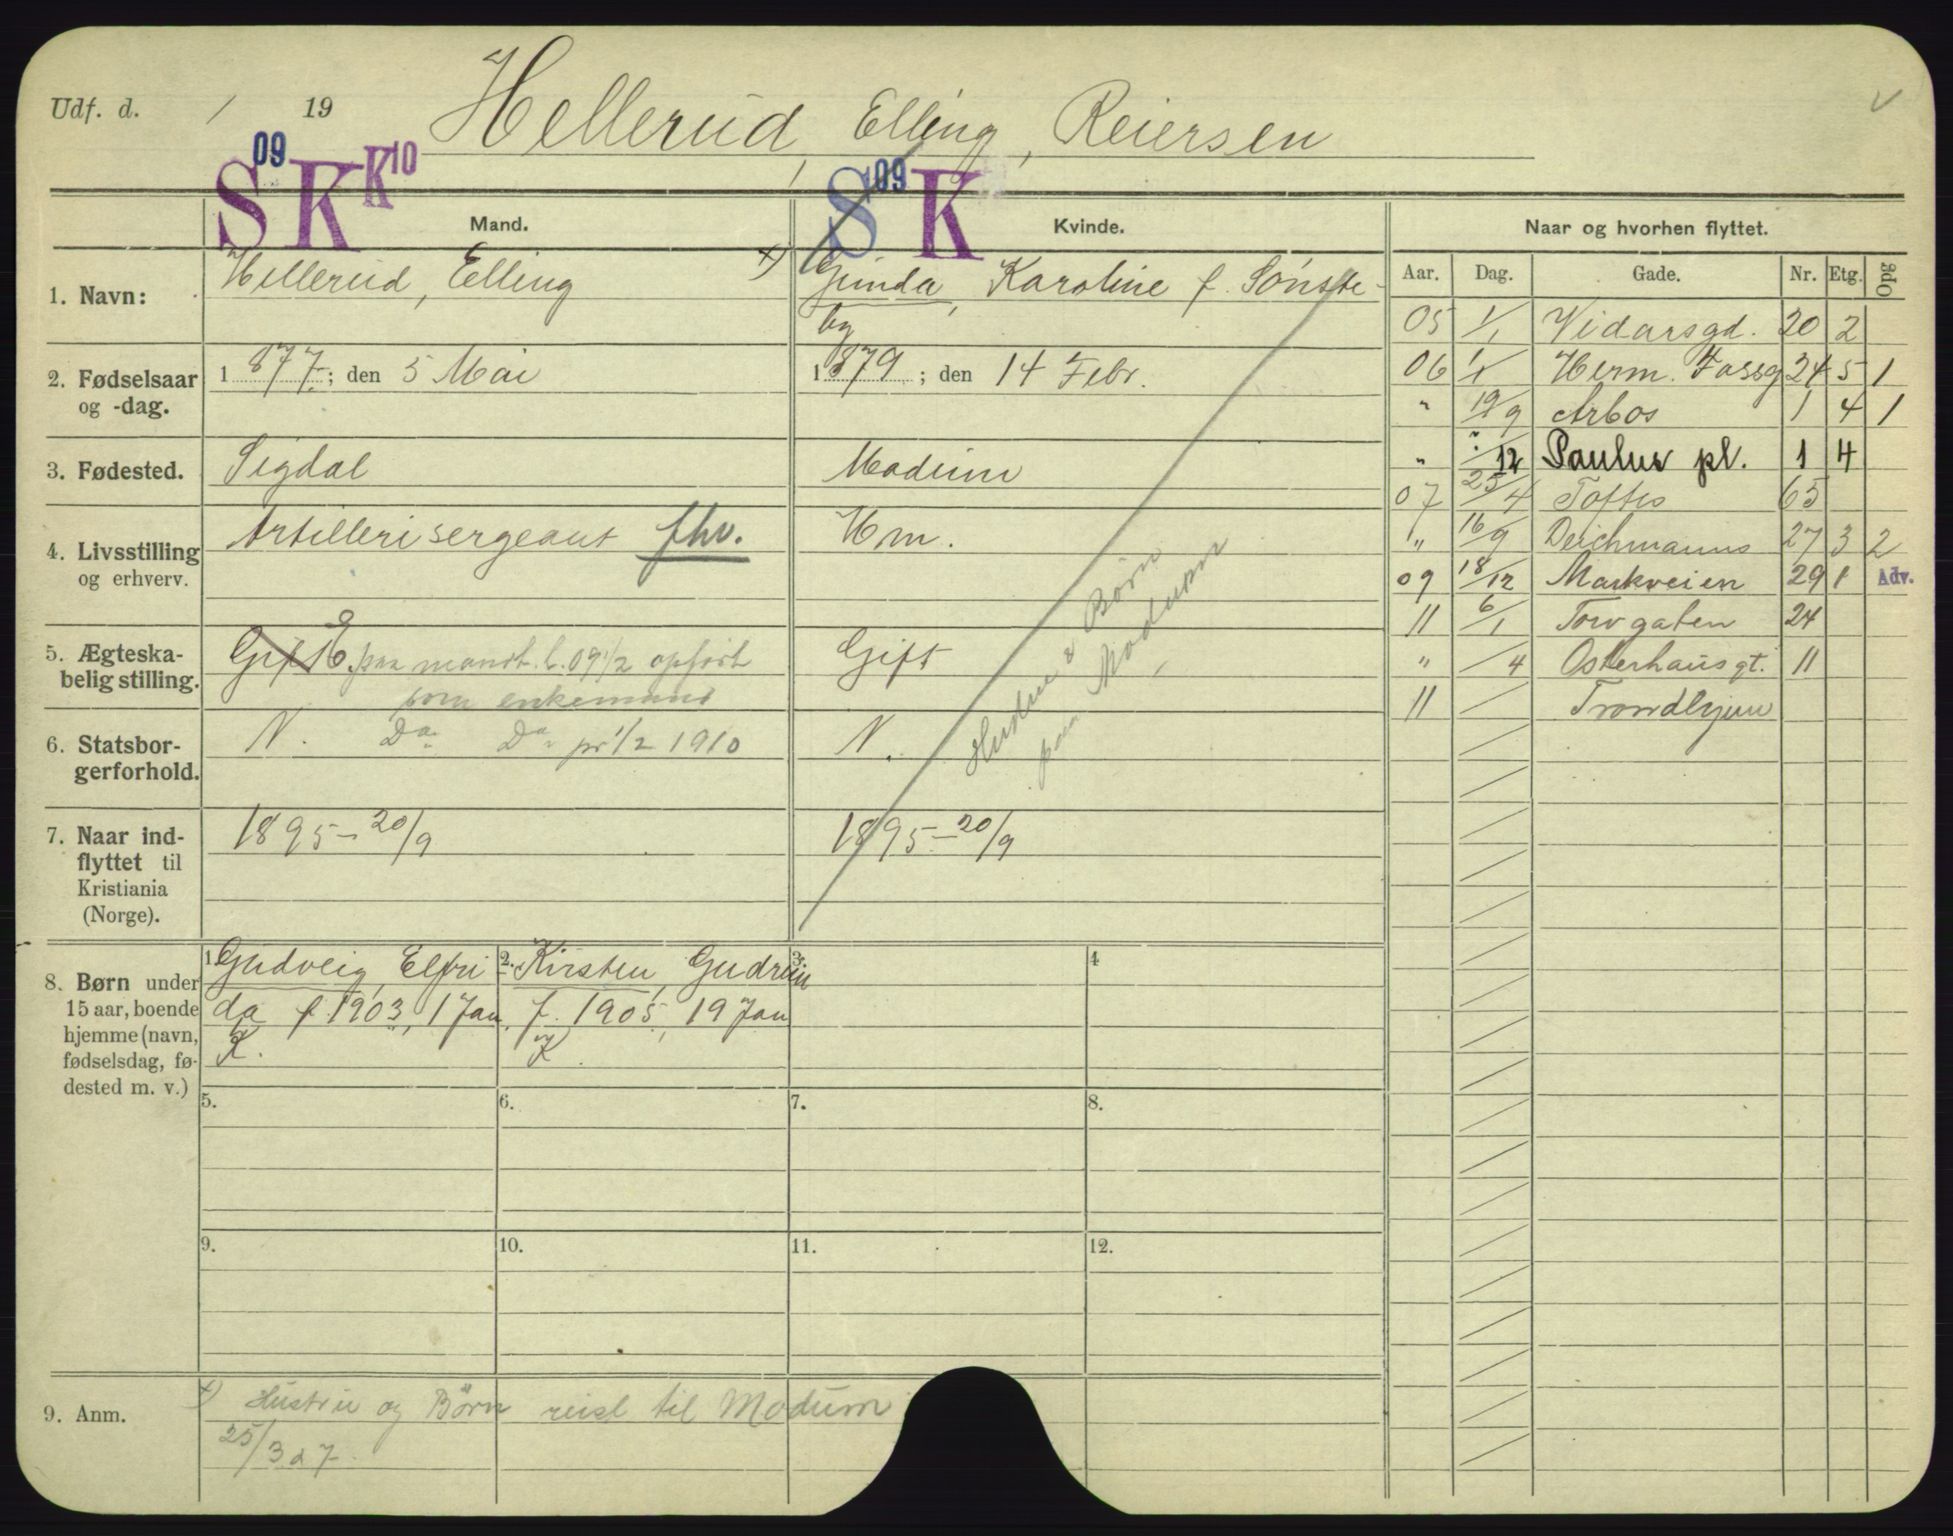 Udf. d. / 19 Hellerud, Elling, Reiersen
S 09 K K 10
S 09 K
Mand.
Kvinde.
Naar og hvorhen flyttet.
1. Navn:
Hellerud, Elling
x) Gunda, Karoline f. Sönste-
by
2. Fødselsaar
og -dag.
1877; den 5 Mai
1879; den 14 Febr.
3. Fødested.
Sigdal
Modum
4. Livsstilling
og erhverv.
Artillerisergeant fhv.
Hm.
5. Ægteska-
belig stilling.
Gift E. paa mandt. l. 09 1/2 opført
som enkemand
Gift
Hustru & Børn
paa Modum
6. Statsbor-
gerforhold.
N. Do. Do. pr 1/2 1910
N.
7. Naar ind-
flyttet til
Kristiania
(Norge).
1895 – 20/9
1895 – 20/9
8. Børn under
15 aar, boende
hjemme (navn,
fødselsdag, fø-
dested m. v.)
1. Gudveig, Elfri-
da f. 1903, 1 Jan.
K.
2. Kirsten, Gudrun
f. 1905, 19 Jan
K
3.
4
5.
6.
7.
8.
9.
10.
11.
12.
9. Anm.
x) Hustru og Børn reist til Modum
25/3 07.
Aar. Dag. Gade. Nr. Etg. Opg
05 1/1 Vidarsgd. 20 2
06 1/1 Herm. Fossg 24 5 1
" 19/9 Arbos 1 4 1
" /12 Paulus pl. 1 4
07 25/4 Toftes 65
" 16/9 Deichmanns 27 3 2
09 18/12 Markveien 29 1 Adv.
11 6/1 Torvgaten 24
" /4 Osterhausgt. 11
11 / Trondhjem